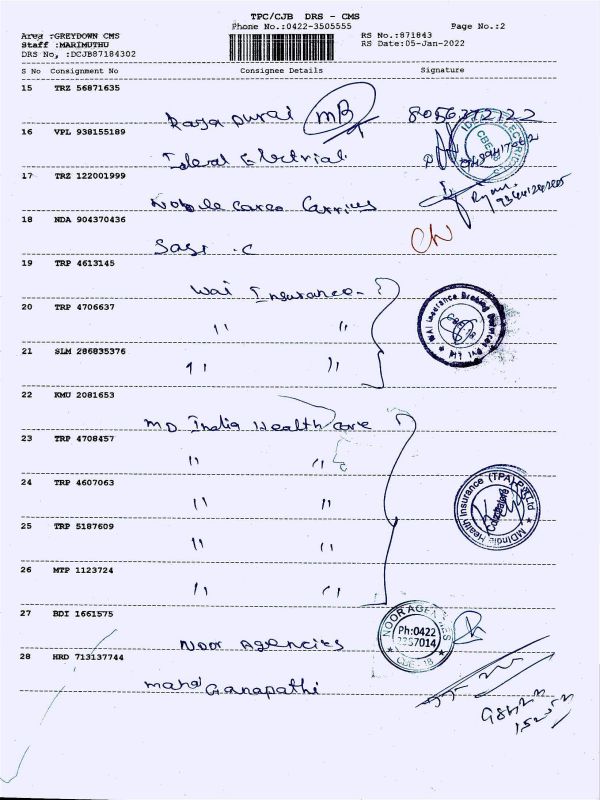 TPC/CJB DRS - CMS
Phone No.:0422-3505555 Page No.:2
Area :GREYDOWN CMS RS No.:871843
Staff :MARIMUTHU RS Date:05-Jan-2022
DRS No, :DCJB87184302
S No Consignment No Consignee Details Signature
15 TRZ 56871635
Raja Durai MB 8056272122
16 VPL 938155189
Ideal Electrial
17 TRZ 122001999
Noble Cargo Carriers
18 NDA 904370436
Sasi .C
19 TRP 4613145
Wai Insurance
20 TRP 4706637
" "
21 SLM 286835376
" "
WAI Insurance Broking Services Pvt Ltd
22 KMU 2081653
MD India Health care
23 TRP 4708457
" "
24 TRP 4607063
" "
MDIndia Health Insurance (TPA) P. Ltd
Coimbatore
25 TRP 5187609
" "
26 MTP 1123724
" "
27 BDI 1661575
Noor Agencies
NOOR AGENCIES
Ph:0422
2367014
CBE-18
28 HRD 713137744
maha Ganapathi